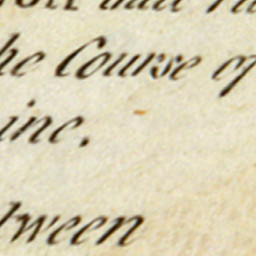 he Course of
ine.
tween